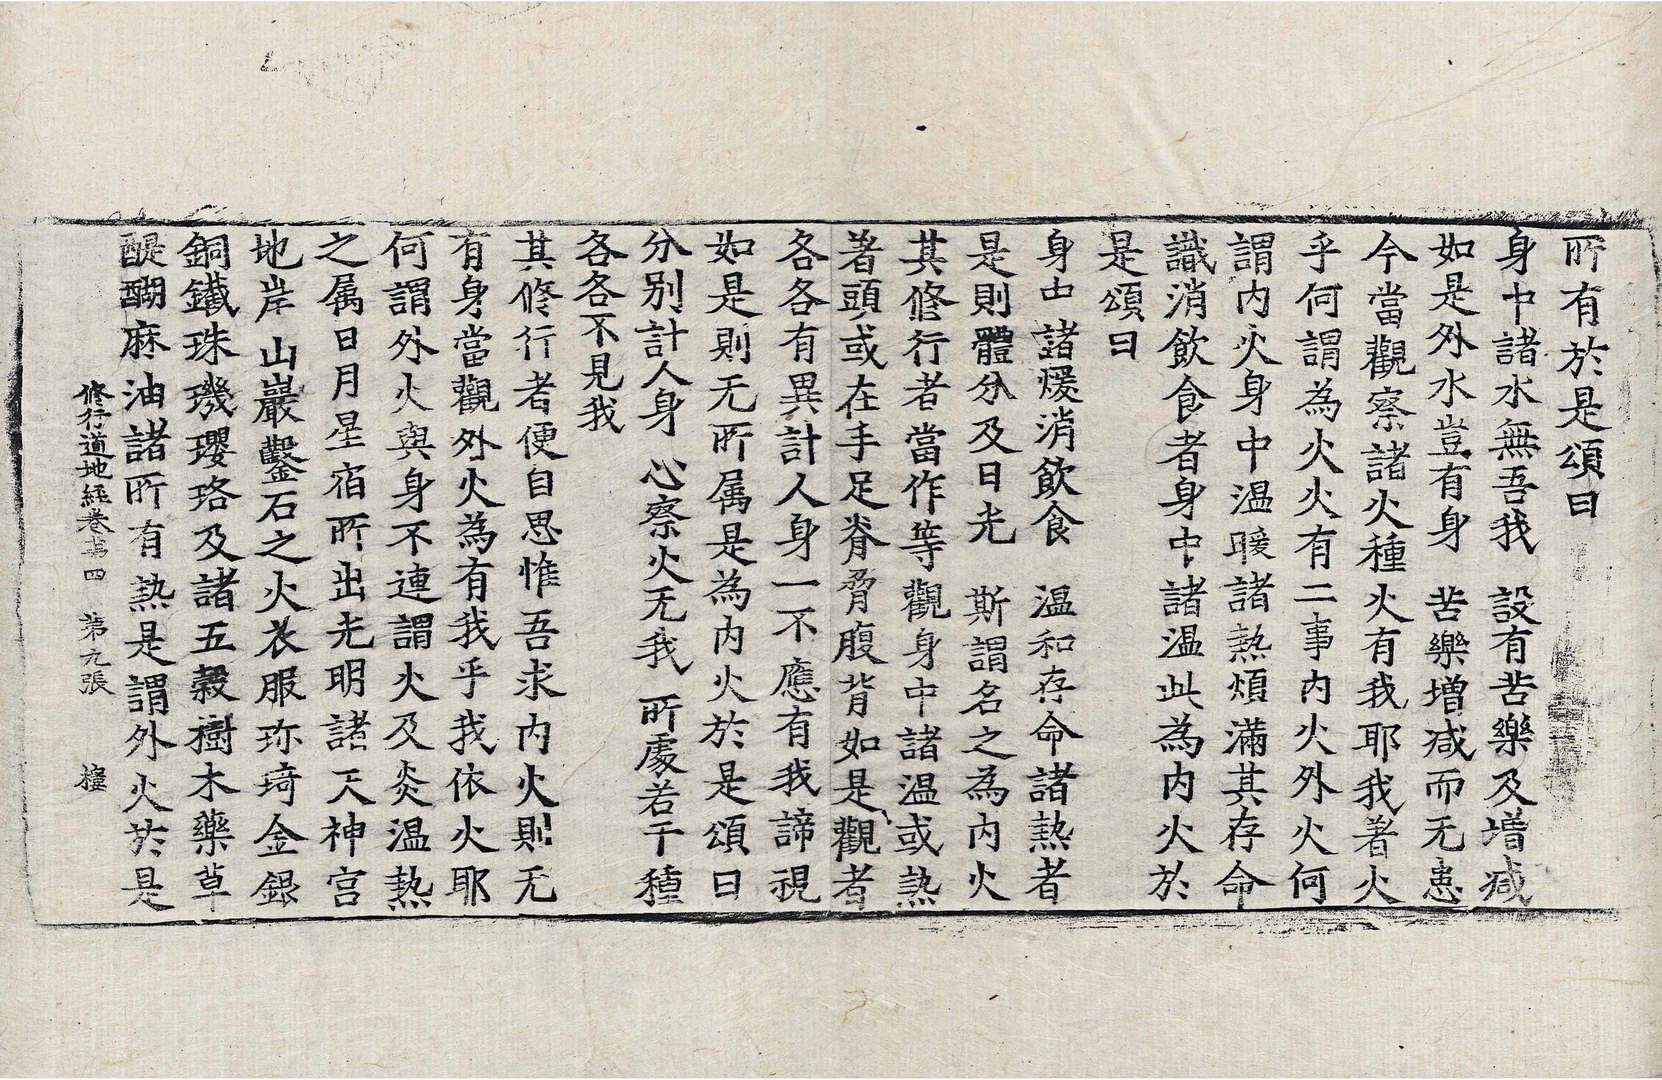 所有於是頌曰
身中諸水無吾我　設有苦樂及增減
如是外水豈有身　苦樂增减而无患
今當觀察諸火種火有我耶我著火
乎何謂為火火有二事內火外火何
謂內火身中温暖諸熱煩滿其存命
識消飲食者身中諸温此為內火於
是頌曰
身中諸煖消飲食　温和存命諸熱者
是則體分及日光　斯謂名之為內火
其修行者當作等觀身中諸温或熱
著頭或在手足脊脅腹背如是觀者
各各有異計人身一不應有我諦視
如是則无所属是為內火於是頌曰
分別計人身　心察火无我　所處若干種
各各不見我
其修行者便自思惟吾求內火則无
有身當觀外火為有我乎我依火耶
何謂外火與身不連謂火及炎温熱
之属日月星宿所出光明諸天神宫
地岸山巖鑿石之火衣服珎琦金銀
銅鐵珠璣瓔珞及諸五榖樹木藥草
醍醐麻油諸所有熱是謂外火於是
修行道地經卷苐四　第九張